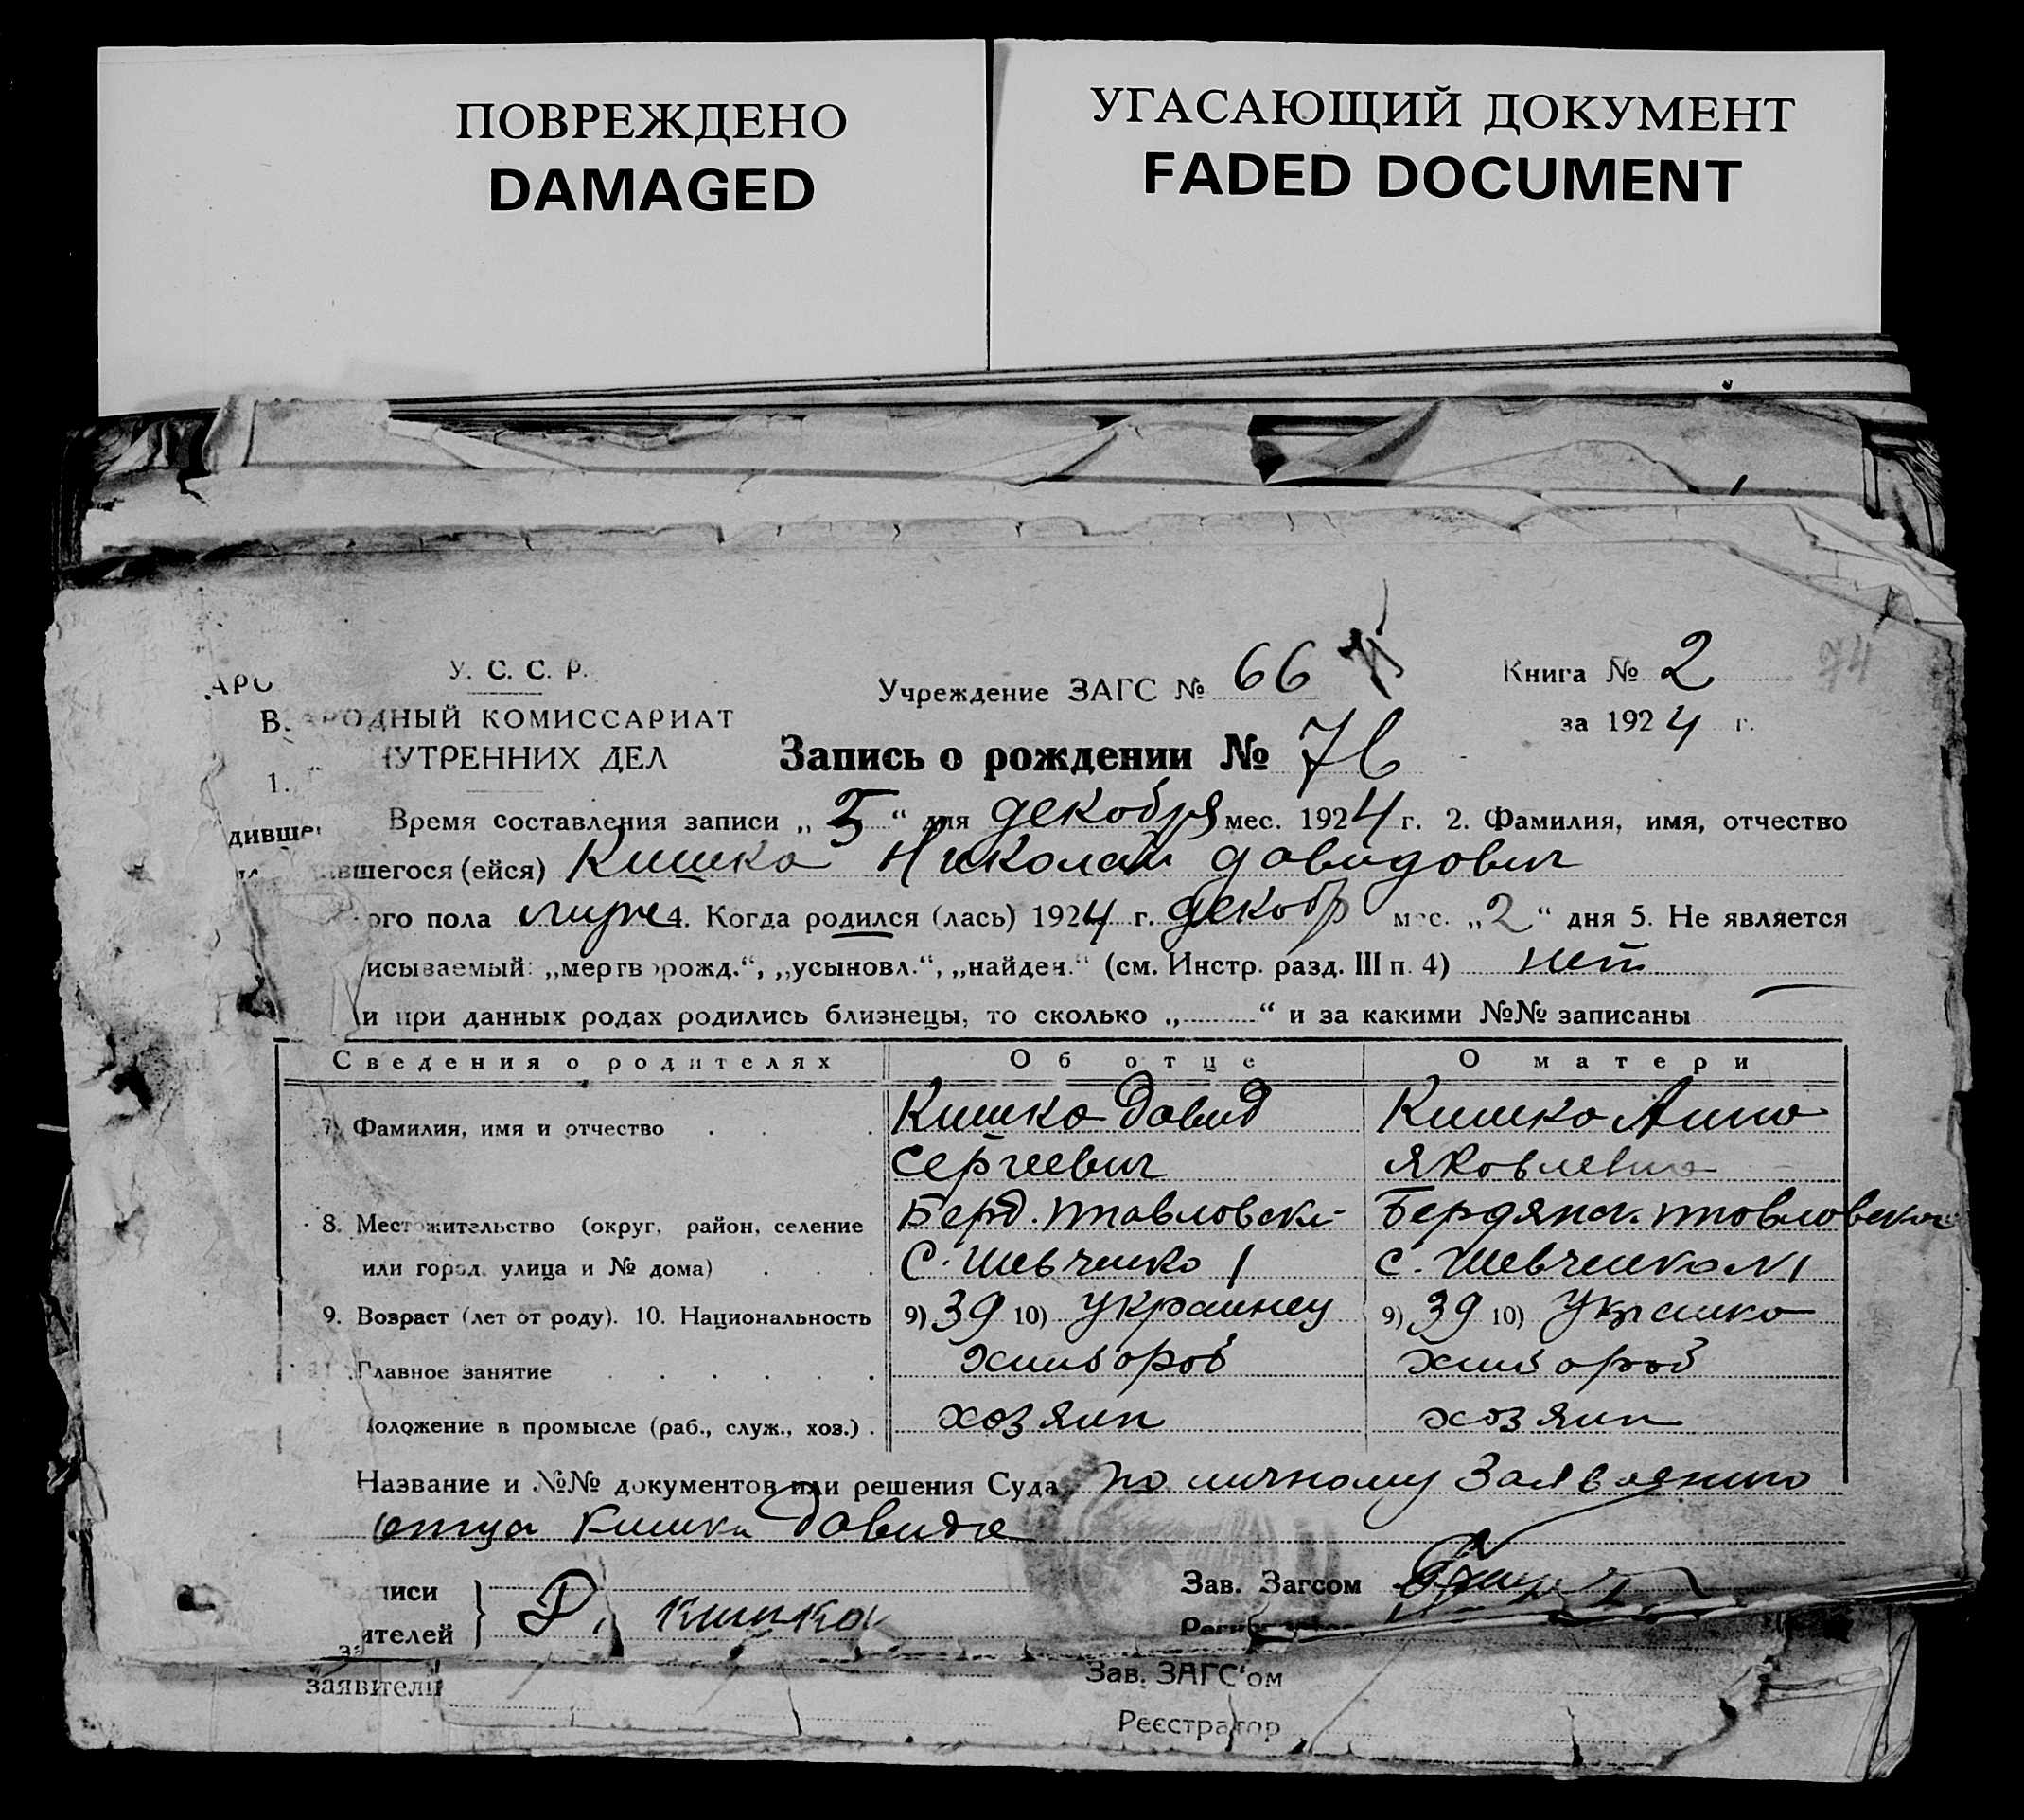 ПОВРЕЖДЕНО
DAMAGED
УГАСАЮЩИЙ ДОКУМЕНТ
FADED DOCUMENT
У. С. С. Р.
АРОДНЫЙ КОМИССАРИАТ
НУТРЕННИХ ДЕЛ
Учреждение ЗАГС № 66
Книга № 2
за 1924 г.
74
Запись о рождении № 76
1.
Время составления записи „5“ дня декобря мес. 1924 г. 2. Фамилия, имя, отчество
вшегося (ейся) Кишко Николай Давидович
ого пола муже 4. Когда родился (лась) 1924 г. декобр мес. „2“ дня 5. Не является
исываемый: „мертворожд.“, „усыновл.“, „найден.“ (см. Инстр. разд. III п. 4) нет
и при данных родах родились близнецы, то сколько „..........“ и за какими №№ записаны
Сведения о родителях Об отце О матери
7) Фамилия, имя и отчество Кишко Давид Кишко Анна
Сергеевич Яковлевна
8. Местожительство (округ, район, селение Берд. Павловски Бердянск. Павловском
или город, улица и № дома) С. Шевченко 1 С. Шевченко №1
9. Возраст (лет от роду). 10. Национальность 9) 39 10) Украинец 9) 39 10) Украинка
Главное занятие хлибороб хлибороб
Положение в промысле (раб., служ., хоз.) хозяин хозяин
Название и №№ документов или решения Суда по личному Заявлению
отца Кишки Давида
писи
ителей
Д. Кишко
Зав. Загсом
заявители
Зав. ЗАГС'ом
Реєстратор